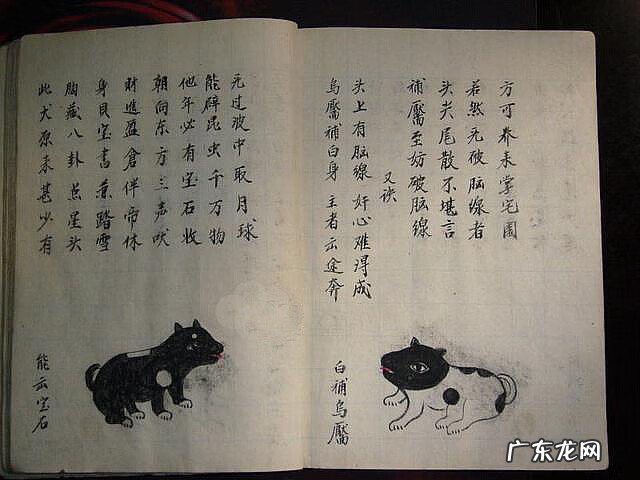 方可养来掌宅園
若然无破脑線者
头尖尾散不堪言
補黶至妨破脑線
又诀
头上有脑線 奸心难得成
乌黶補白身 主者云途奔
白補乌黶
元过波中取月球
能辟昆虫千万物
他年必有宝石收
朝向东方三声吠
财進盈倉伴帝休
身貝宝書踏雪
胸藏八卦点星头
此犬原来甚少有
能云宝石
广东龙网